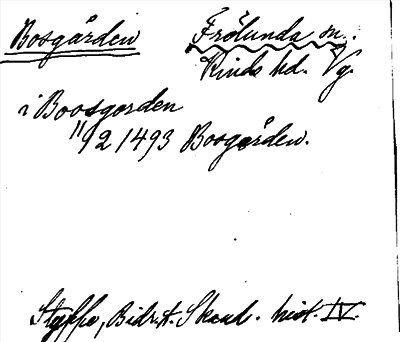 Bosgården Frölunda sn.
Kinds hd. Vg.
i Boosgorden
11/2 1493 Bosgården.
Styffe, Bidr. t. Skand. hist. IV.